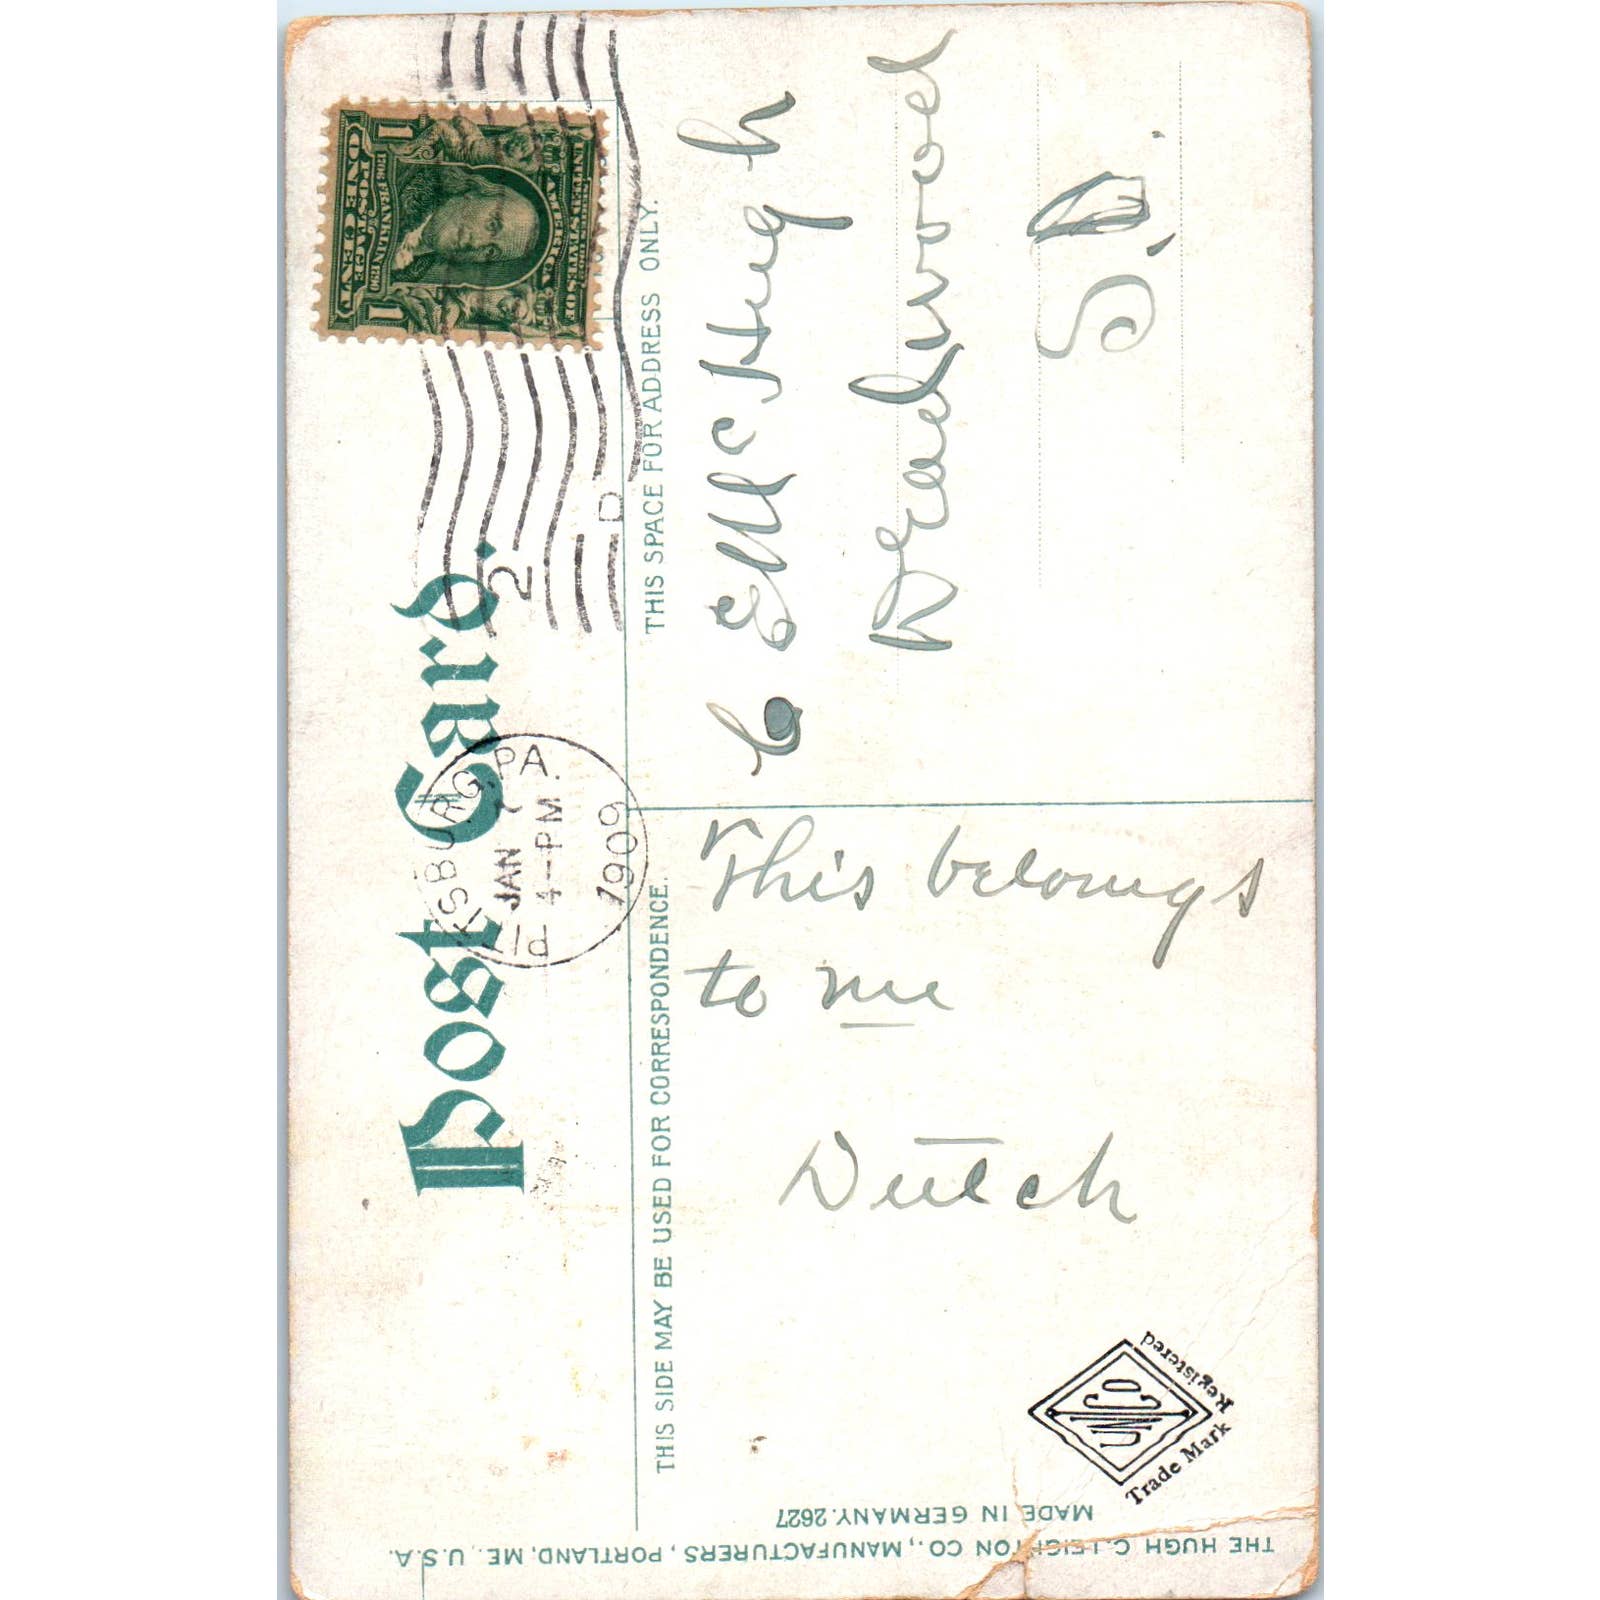 Post Card.
PITTSBURG, PA.
JAN 7
4-PM
1909
2
D
UNITED STATES OF AMERICA
1706 FRANKLIN 1790
POSTAGE
1 ONE CENT 1
THIS SIDE MAY BE USED FOR CORRESPONDENCE.
This belongs
to me
Dutch
THIS SPACE FOR ADDRESS ONLY.
C E McHugh
Deadwood
S.D.
THE HUGH C. LEIGHTON CO., MANUFACTURERS, PORTLAND, ME., U.S.A.
MADE IN GERMANY. 2627
Trade Mark
Registered